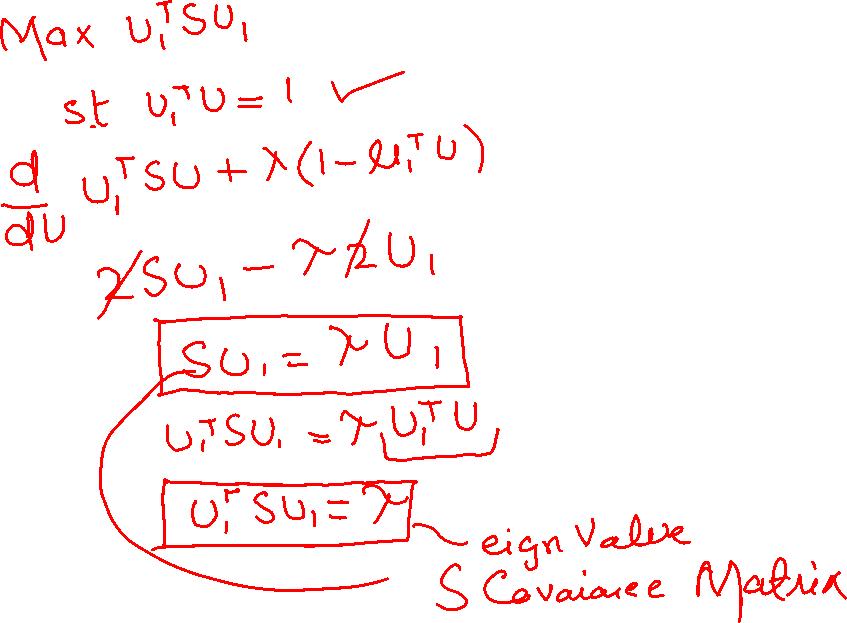 Max U₁ᵀSU₁
st U₁ᵀU = 1 ✓
d/dU U₁ᵀSU + λ(1 - U₁ᵀU)
2SU₁ - λ2U₁
SU₁ = λU₁
U₁ᵀSU₁ = λU₁ᵀU
U₁ᵀSU₁ = λ
eign Value
S Covaiance Matrix